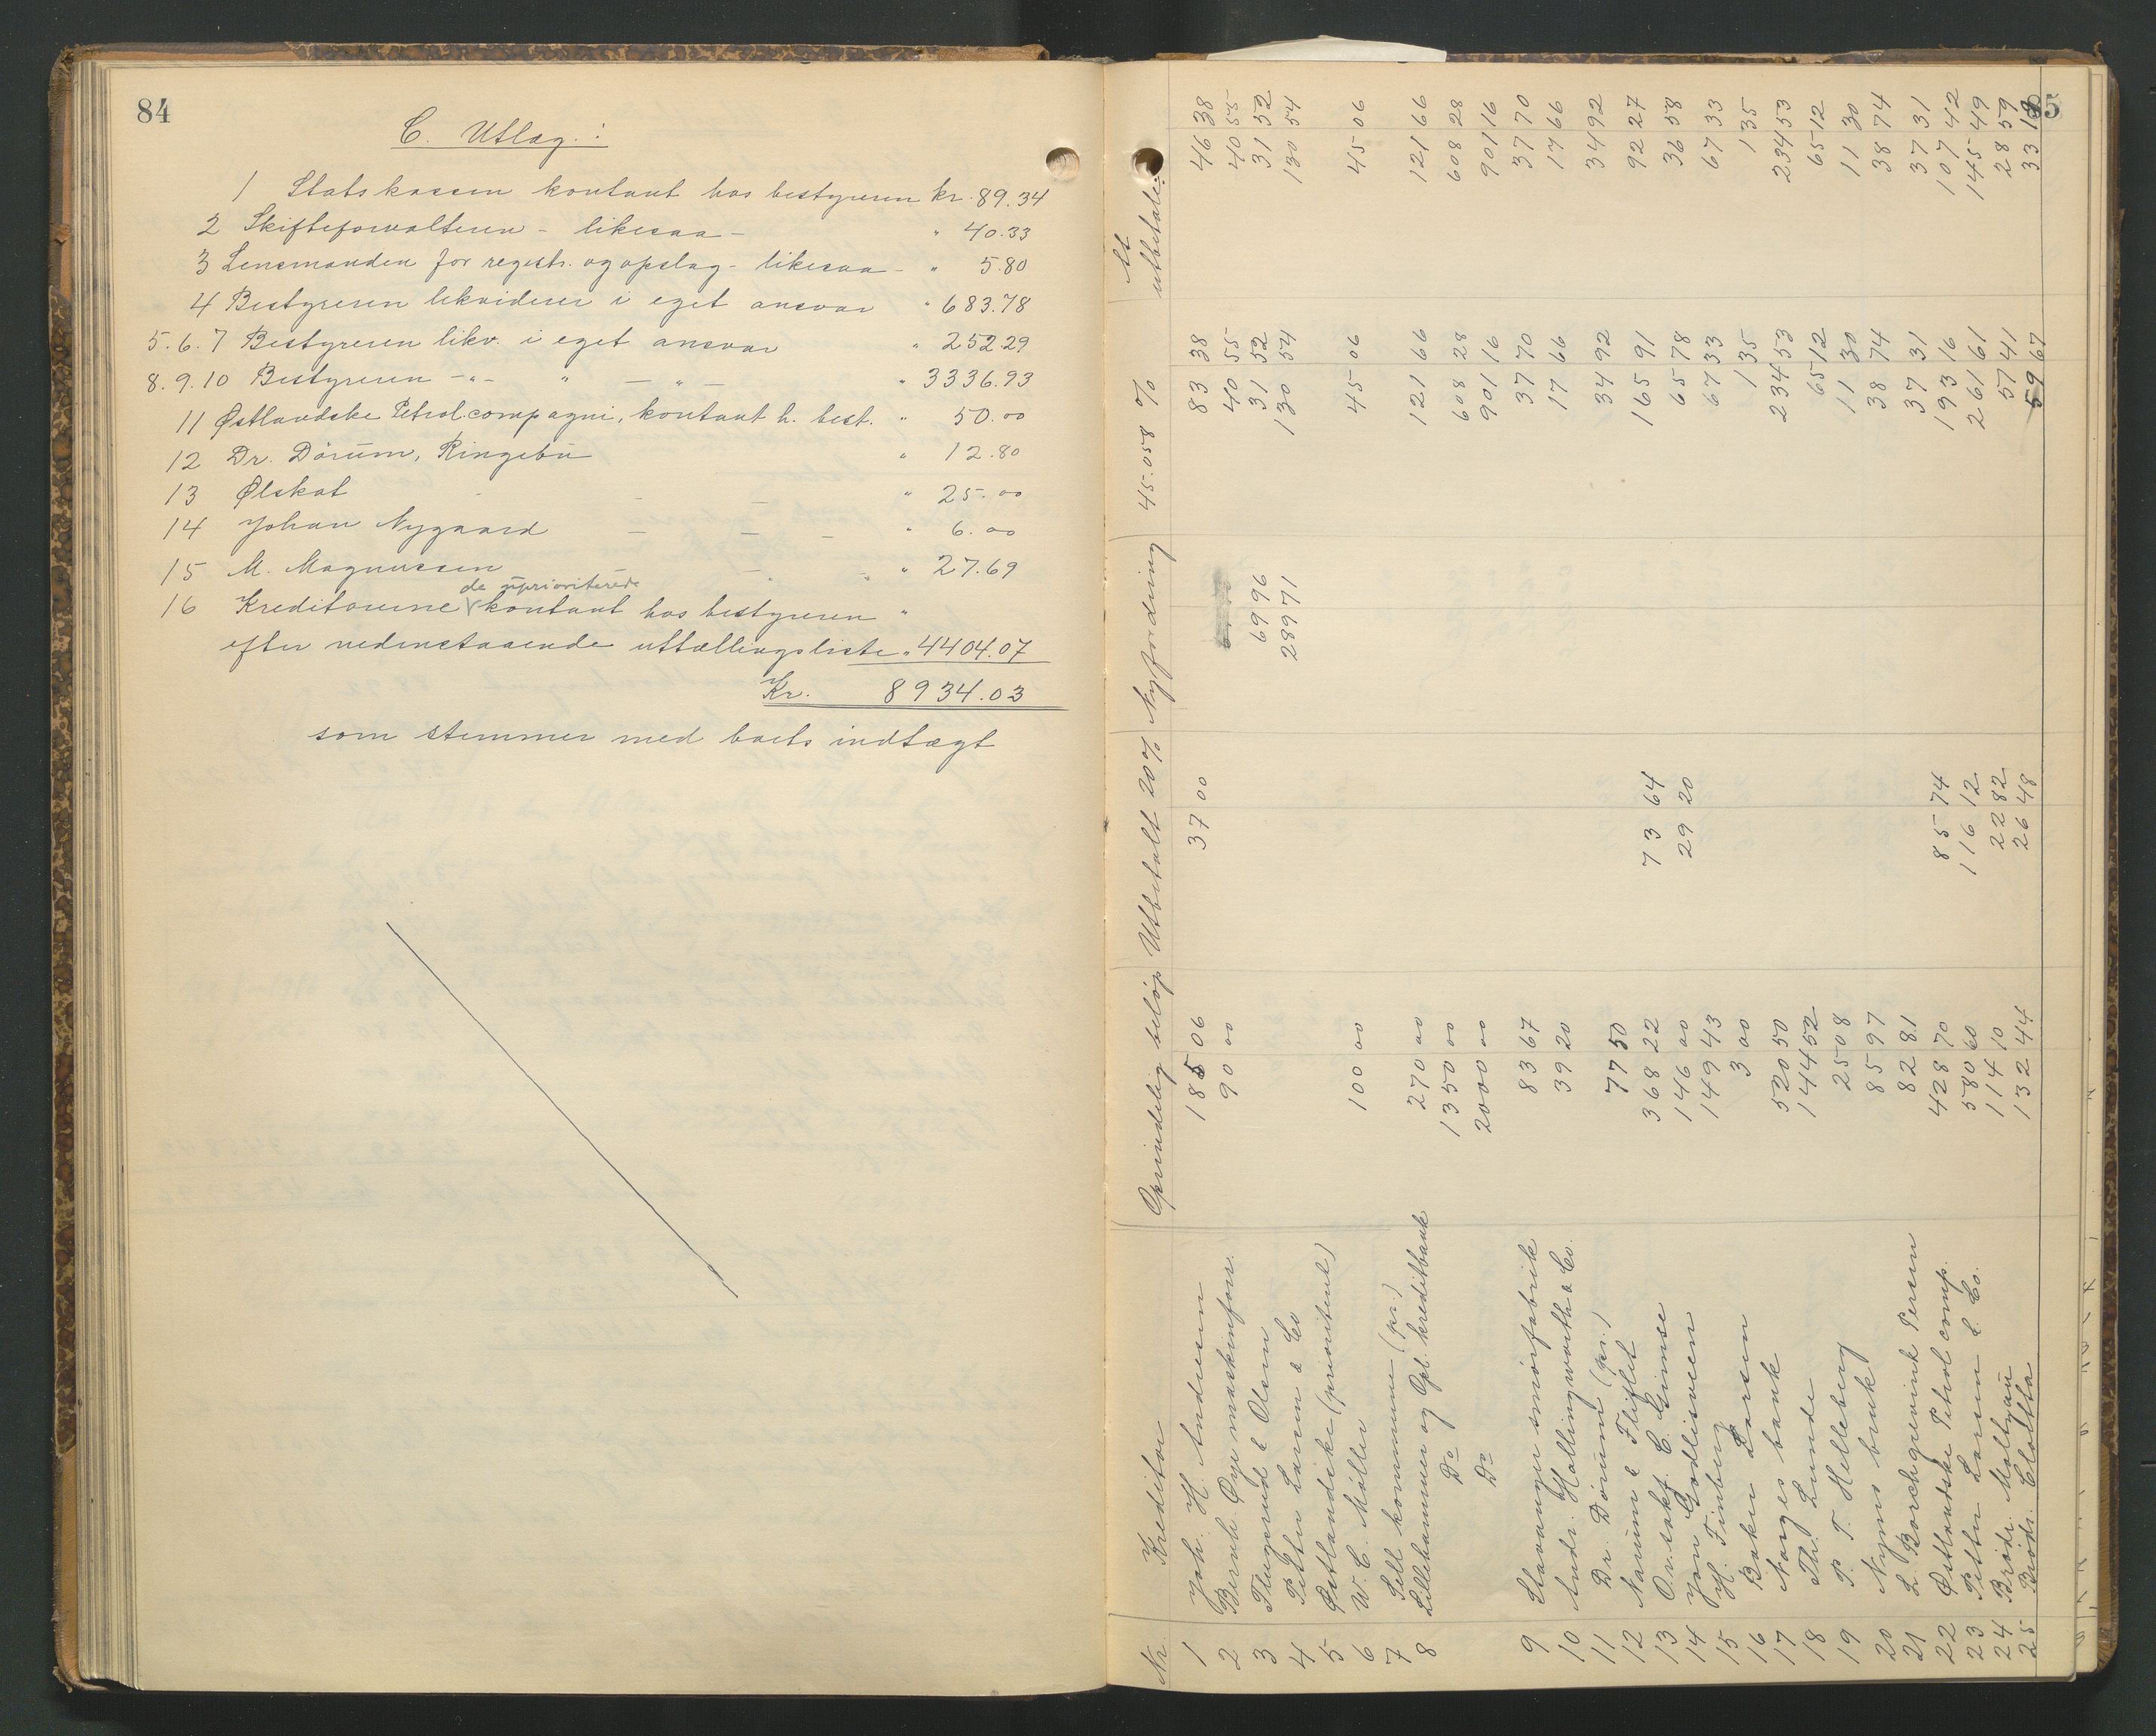 84
C. Utlæg:
1 Statskassen kontant hos bestyreren kr. 89.34
2 Skifteforvalteren - likesaa - " 40.33
3 Lensmanden for registr. og opslag - likesaa - " 5.80
4 Bestyreren likviderer i eget ansvar " 683.78
5.6.7 Bestyreren likv. i eget ansvar " 252.29
8.9.10 Bestyreren -"- " - " - " 3336.93
11 Østlandske Petrol.compagni, kontant h. best. " 50.00
12 Dr. Dörum, Ringebu " 12.80
13 Ølskat - - - " 25.00
14 Johan Nygaard - - - " 6.00
15 M. Magnussen - " " " 27.69
de uprioriterede
16 Kreditorerne kontant hos bestyreren "
efter nedenstaaende uttællingsliste " 4404.07
Kr. 8934.03
som stemmer med boets indtægt
85
Nr. Kreditor Oprindelig beløp Utbetalt 20% Nyfordring 45.058 % At utbetale:
1 Joh. H. Andresen 185 06 37 00 83 38 46 38
2 Bernh. Øye maskinforr. 90 00 40 55 40 55
3 Flugsrud & Olsen 69 96 31 52 31 52
4 Petter Larsen & Co 289 71 130 54 130 54
5 Østlandske (prioritert)
6 W. C. Møller 100 00 45 06 45 06
7 Sell kommune (pr.)
8 Lillehammer og Opl. kreditbank 270 00 121 66 121 66
Do 1350 00 608 28 608 28
Do 2000 00 901 16 901 16
9 Stavanger smörfabrik 83 67 37 70 37 70
10 Andr. Hollingworth & Co. 39 20 17 66 17 66
11 Dr. Dörum (pr.) 77 50 34 92 34 92
12 Narum & Fliflet 368 22 73 64 165 91 92 27
13 O.r.sakf. C. Gimse 146 00 29 20 65 78 36 58
14 Jon Godlisveen 149 43 67 33 67 33
15 H. Finborg 3 00 1 35 1 35
16 Baker Larsen
17 Norges bank 520 50 234 53 234 53
18 Th. Lunde 144 52 65 12 65 12
19 P. T. Helleberg 25 08 11 30 11 30
20 Nyms bruk 85 97 38 74 38 74
21 L. Borchgrevink Persen 82 81 37 31 37 31
22 Østlandske Petrol comp. 428 70 85 74 193 16 107 42
23 Petter Larsen & Co. 580 60 116 12 261 61 145 49
24 Brødr. Moltzau 114 10 22 82 51 41 28 59
25 Brødr. Cloëtta 132 44 26 48 59 67 33 19